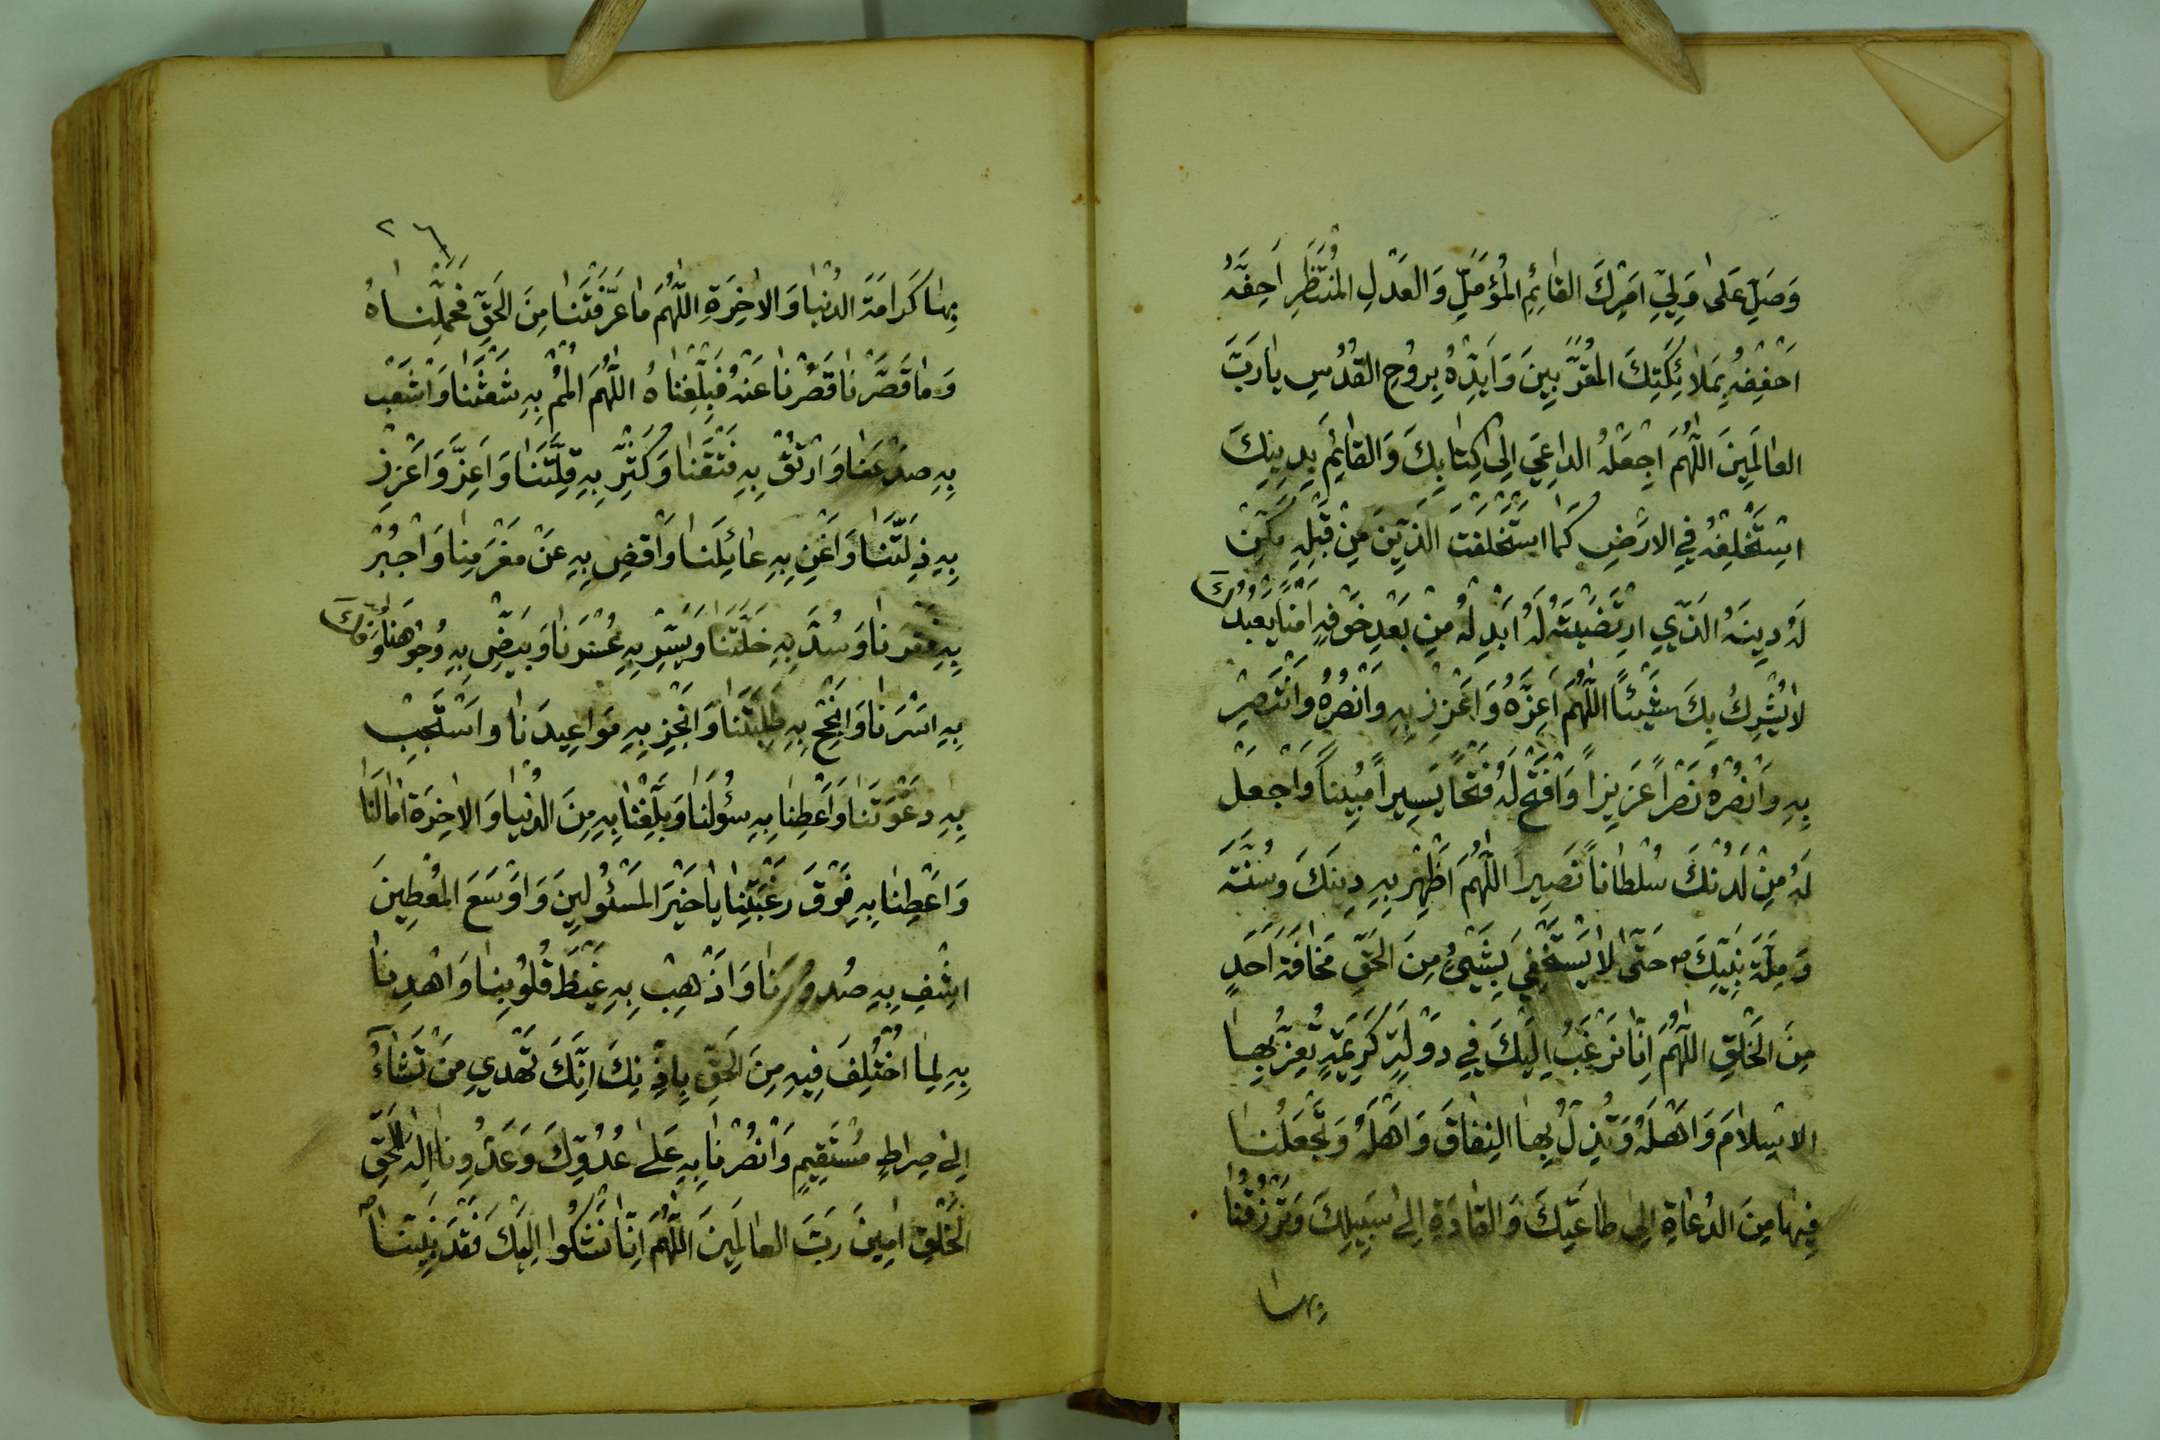 وَصَلِّ عَلىٰ وَلِيِّ اَمْرِكَ القٰائِمِ المُؤَمَّلِ وَالعَدْلِ المُنْتَظَرِ اَحِفَّهُ
اَحْفِفْهُ بِمَلائِكَتِكَ المُقَرَّبِينَ وَاَيِّدْهُ بِرُوحِ القُدُسِ يٰارَبَّ
العٰالَمِينَ اللّٰهُمَّ اجْعَلْهُ الدٰاعِيَ اِلىٰ كِتٰابِكَ وَالقٰائِمَ بِدِينِكَ
اسْتَخْلِفْهُ فِي الارْضِ كَمٰا اسْتَخْلَفْتَ الَّذِينَ مِنْ قَبْلِهِ مَكِّنْ
لَهُ دِينَهُ الَّذِي ارْتَضَيْتَهُ لَهُ اَبْدِلْهُ مِنْ بَعْدِ خَوْفِهِ اَمْنًا يَعْبُدُكَ
لٰا يُشْرِكُ بِكَ شَيْئًا اللّٰهُمَّ اَعِزَّهُ وَاَعْزِزْ بِهِ وَانْصُرْهُ وَانْتَصِرْ
بِهِ وَانْصُرْهُ نَصْراً عَزِيزاً وَافْتَحْ لَهُ فَتْحًا يَسِيراً مُبِيناً وَاجْعَلْ
لَهُ مِنْ لَدُنْكَ سُلْطٰاناً نَصِيراً اللّٰهُمَّ اَظْهِرْ بِهِ دِينَكَ وَسُنَّتَهُ
وَمِلَّةَ نَبِيِّكَ ص حَتّٰى لٰا يَسْتَخْفِيَ بِشَيْءٍ مِنَ الحَقِّ مَخٰافَةَ اَحَدٍ
مِنَ الخَلْقِ اللّٰهُمَّ اِنّٰا نَرْغَبُ اِلَيْكَ فِي دَوْلَةٍ كَرِيمَةٍ تُعِزُّ بِهٰا
الاسْلٰامَ وَاَهْلَهُ وَتُذِلُّ بِهٰا النِفٰاقَ وَاَهْلَهُ وَتَجْعَلُنٰا
فِيهٰا مِنَ الدُعٰاةِ اِلىٰ طٰاعَتِكَ وَالقٰادَةِ اِلىٰ سَبِيلِكَ وَتَرْزُقُنٰا
بِهٰا
٢٦
بِهٰا كَرٰامَةَ الدُنْيٰا وَالاٰخِرَةِ اللّٰهُمَّ مٰا عَرَّفْتَنٰا مِنَ الحَقِّ فَحَمِّلْنٰاهُ
وَمٰا قَصَّرْنٰا قَصُرْنٰا عَنْهُ فَبَلِّغْنٰاهُ اللّٰهُمَّ المُمْ بِهِ شَعْثَنٰا وَاشْعَبْ
بِهِ صَدْعَنٰا وَارْتُقْ بِهِ فَتْقَنٰا وَكَثِّرْ بِهِ قِلَّتَنٰا وَاَعِزَّ وَاَعْزِزْ
بِهِ ذِلَّتَنٰا وَاَغْنِ بِهِ عٰائِلَنٰا وَاقْضِ بِهِ عَنْ مَغْرَمِنٰا وَاجْبُرْ
بِهِ فَقْرَنٰا وَسُدَّ بِهِ خَلَّتَنٰا وَيَسِّرْ بِهِ عُسْرَنٰا وَبَيِّضْ بِهِ وُجُوهَنٰا وَفُكَّ
بِهِ اَسْرَنٰا وَاَنْجِحْ بِهِ طَلِبَتَنٰا وَاَنْجِزْ بِهِ مَوٰاعِيدَنٰا وَاسْتَجِبْ
بِهِ دَعْوَتَنٰا وَاَعْطِنٰا بِهِ سُؤْلَنٰا وَبَلِّغْنٰا بِهِ مِنَ الدُنْيٰا وَالاٰخِرَةِ اٰمٰالَنٰا
وَاَعْطِنٰا بِهِ فَوْقَ رَغْبَتِنٰا يٰا خَيْرَ المَسْئُولِينَ وَاَوْسَعَ المُعْطِينَ
اشْفِ بِهِ صُدُورَنٰا وَاَذْهِبْ بِهِ غَيْظَ قُلُوبِنٰا وَاهْدِنٰا
بِهِ لِمٰا اخْتُلِفَ فِيهِ مِنَ الحَقِّ بِاِذْنِكَ اِنَّكَ تَهْدِي مَنْ تَشٰاۤءُ
اِلىٰ صِرٰاطٍ مُسْتَقِيمٍ وَانْصُرْنٰا بِهِ عَلىٰ عَدُوِّكَ وَعَدُوِّنٰا اِلٰهَ الحَقِّ
الخَلْقِ اٰمِينَ رَبَّ العٰالَمِينَ اللّٰهُمَّ اِنّٰا نَشْكُوا اِلَيْكَ فَقْدَ نَبِيِّنٰا ص